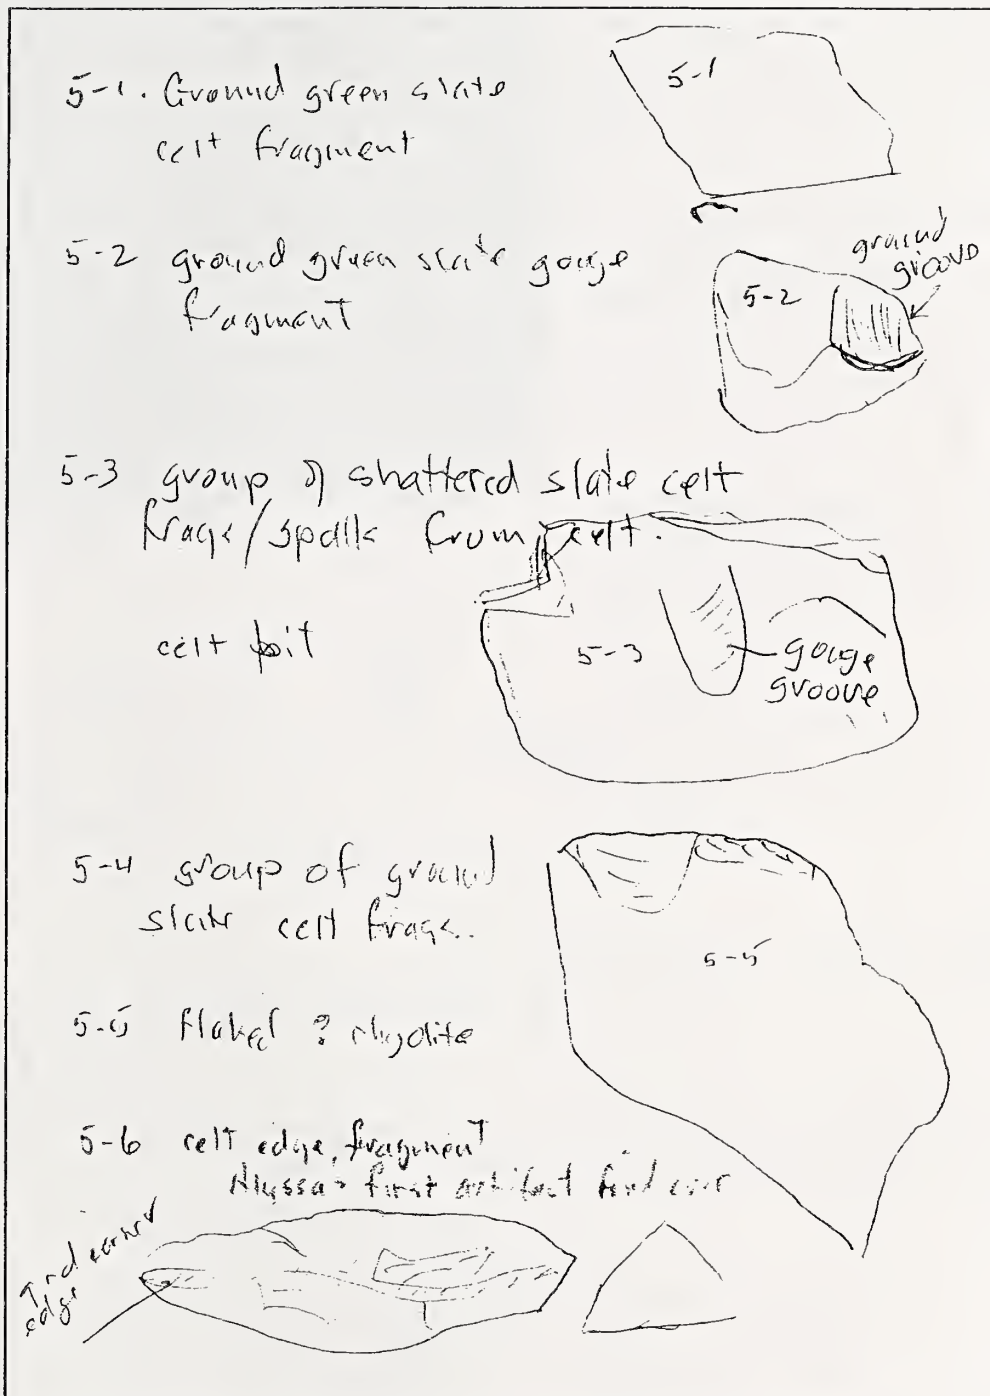 5-1. Ground green slate
celt fragment
5-1
5-2 ground green slate gouge
fragment
5-2
ground
groove
5-3 group of shattered slate celt
frags/spalls from celt.
celt bit
5-3
gouge
groove
5-4 group of ground
slate celt frags.
5-5 flaked ? rhyolite
5-5
5-6 celt edge, fragment
Alyssa's first artifact find ever
edge